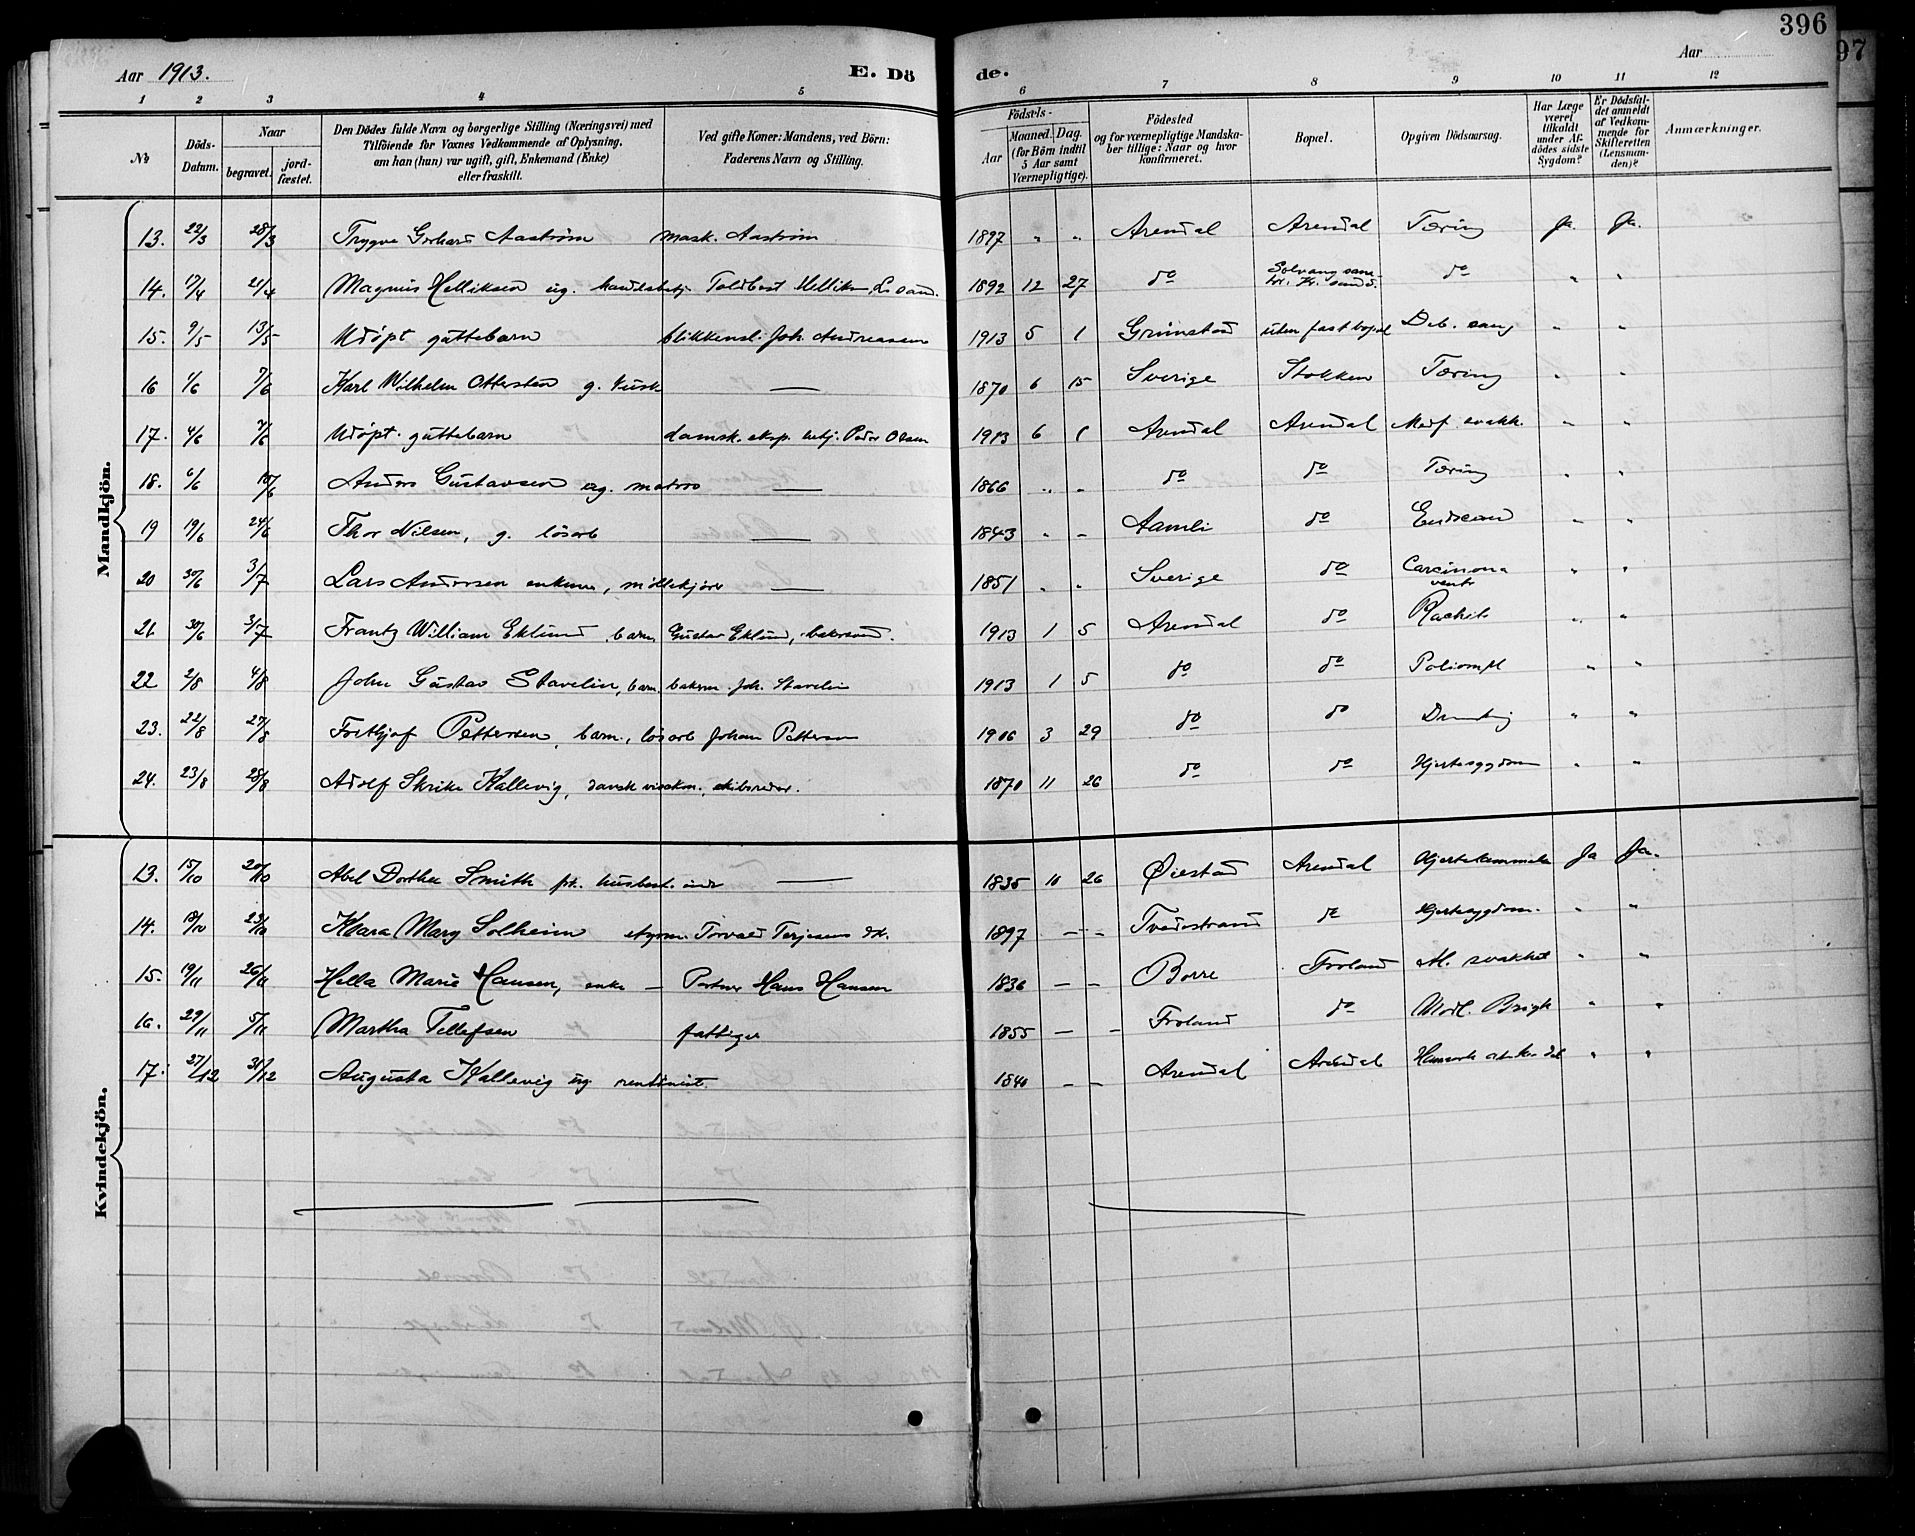 396
97
Aar 1913. E. Dö de. Aar
1 2 3 4 5 6 7 8 9 10 11 12
No
Döds-Datum.
Naar begravet. jordfæstet.
Den Dödes fulde Navn og borgerlige Stilling (Næringsvei) med Tilföiende for Voxnes Vedkommende af Oplysning, om han (hun) var ugift, gift, Enkemand (Enke) eller fraskilt.
Ved gifte Koner: Mandens, ved Börn: Faderens Navn og Stilling.
Födsels- Aar Maaned. Dag. (for Börn indtil 5 Aar samt Værnepligtige).
Födested og for værnepligtige Mandskaber tillige: Naar og hvor konfirmeret.
Bopæl.
Opgiven Dödsaarsag.
Har Læge været tilkaldt under Afdödes sidste Sygdom?
Er Dödsfaldet anmeldt af Vedkommende for Skifteretten (Lensmanden)?
Anmærkninger.
Mandkjön.
13. 22/3 28/3 Trygve Gerhard Aaström mask. Aaström 1897 " " Arendal Arendal Tæring Ja. Ja.
14. 17/4 21/4 Magnus Helliksen ug. handelsbetj. Toldbest Helliksen, 1892 12 27 do Solvang do " "
15. 9/5 13/5 Udöpt guttebarn blikkensl. Joh. Andreassen 1913 5 1 Grimstad uten fast bopæl Deb. " "
16 1/6 7/6 Karl Wilhelm Ottersten g. — 1870 6 15 Sverige Stokken Tæring " "
17. 4/6 7/6 Udöpt guttebarn dampsk. eksp. betj. Peder Olsen 1913 6 1 Arendal Arendal Medf. svakh. " "
18. 6/6 10/6 Anders Gustavsen ug. matros — 1866 " " do do Tæring " "
19 19/6 24/6 Thor Nilsen, g. lösarb — 1843 " " Aamli do " "
20 30/6 3/7 Lars Andersen enkem, möllekjörer — 1851 " " Sverige do Carcinoma ventr " "
21. 30/6 3/7 Frantz William Eklund, barn, Gustav Eklund, bakersvend. 1913 1 5 Arendal do Rachit " "
22 2/8 4/8 John Gustav Stavelin, barn, bakerm. Joh. Stavelin 1913 1 5 do do " "
23. 22/8 27/8 Frithjof Pettersen, barn., lösarb Johan Pettersen 1906 3 29 do do " "
24. 23/8 28/8 Adolf Skrike Kallevig, dansk visekon., skibsreder. 1870 11 26 do do Hjertesygdom " "
Kvindekjön.
13. 15/10 20/10 Abel Dorthea Smith frk. husbest. inde — 1835 10 26 Öiestad Arendal Hjertelammelse Ja Ja.
14. 18/10 23/10 Klara Mary Solheim styrm. Torvald Terjesens dt. 1897 — — Tvedestrand do Hjertesygdom. " "
15. 19/11 25/11 Hella Marie Hansen, enke — Portner Hans Hansen 1836 — — Borre Froland Al. svakhet " "
16. 29/11 5/11 Martha Tellefsen fattiger 1855 — — Froland do " "
17. 27/12 31/12 Augusta Kallevig ug rentenist 1840 — — Arendal Arendal " "